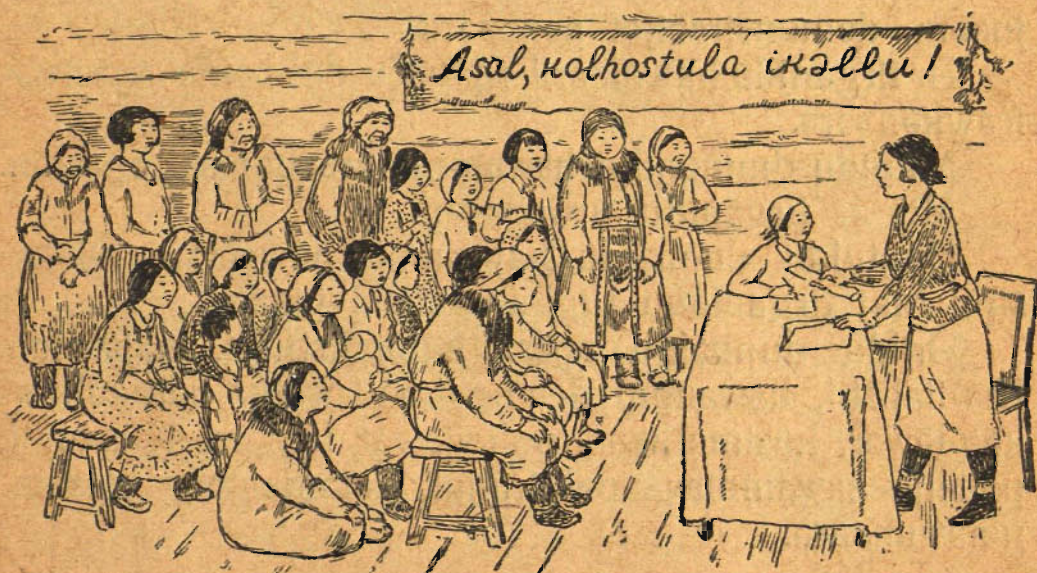 Asal, kolhostula ikəllu!